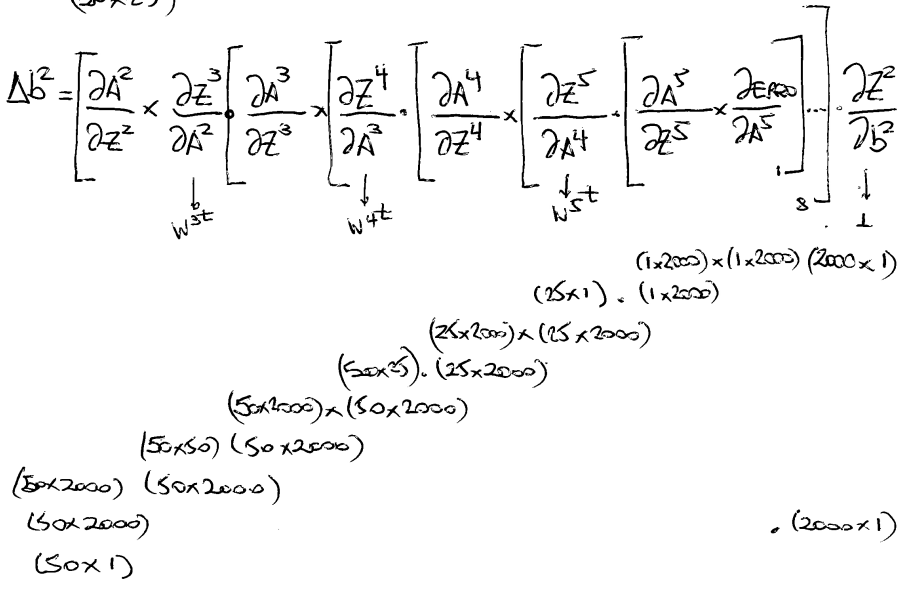 (50×25)
Δb² = [∂A²/∂Z² × ∂Z³/∂A² • [∂A³/∂Z³ × [∂Z⁴/∂A³ · [∂A⁴/∂Z⁴ × [∂Z⁵/∂A⁴ · [∂A⁵/∂Z⁵ × ∂ERRO/∂A⁵]₁ ...]₈ · ∂Z²/∂b²
↓ ↓ ↓ ↓
W³ᵗ W⁴ᵗ W⁵ᵗ 1
(1×2000)×(1×2000) (2000×1)
(25×1) · (1×2000)
(25×2000)×(25×2000)
(50×25) · (25×2000)
(50×2000)×(50×2000)
(50×50) (50×2000)
(50×2000) (50×2000)
(50×2000) · (2000×1)
(50×1)